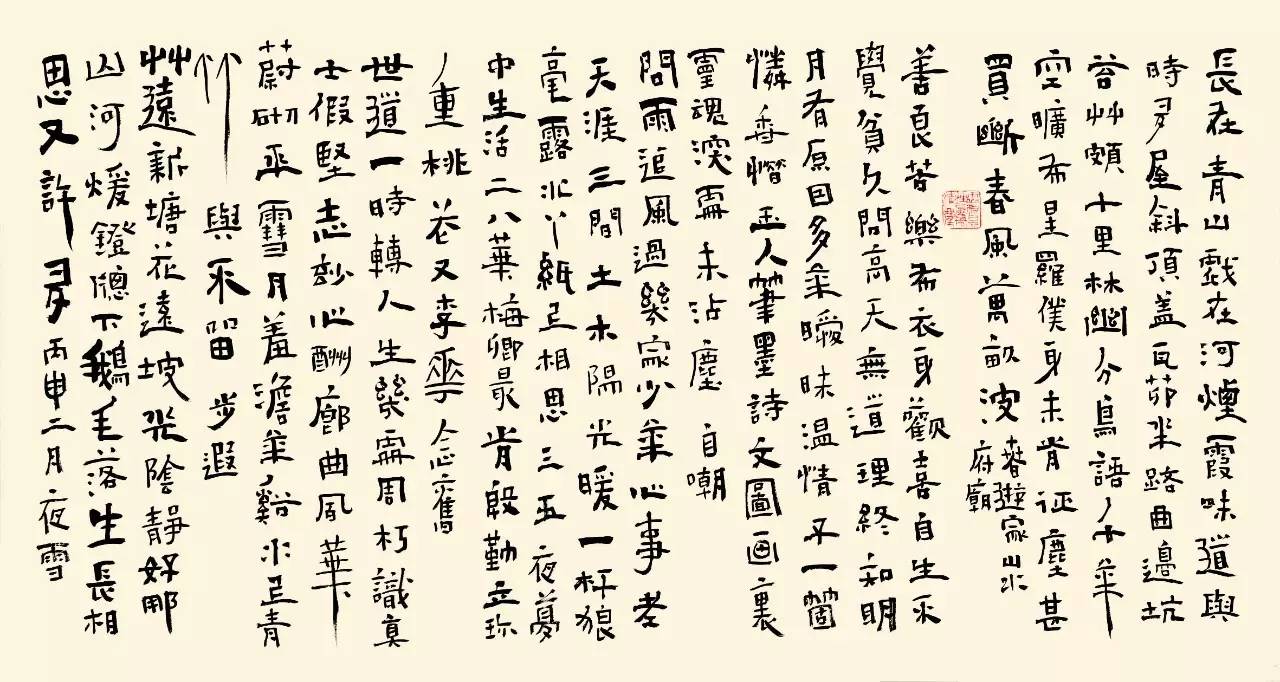 長在青山戲在河煙霞味道與
時多屋斜頂盖瓦茆坐路曲邊坑
苔艸頗十里林幽分鳥語八千年
空曠布星羅僕身未肯征塵甚
買斷春風萬畝波
春遊家山水
府廟
善良苦樂布衣身歡喜自生不
覺貧久問高天無道理終知明
月有原因多年曖昧温情不一箇
憐香惜玉人筆墨詩文圖画裏
靈魂深處未沾塵 自嘲
問雨追風過幾家少年心事老
天涯三間土木陽光暖一杯狼
毫露水丫紙上相思三五夜夢
中生活二八華梅卿最肯殷勤立珎
重桃花又李花 念舊
世道一時轉人生幾處周朽識真
士假堅志妙心酬廊曲風華下
蔚砌平雪月羞澹年谿水上青
竹 與不留步遐
艸遠新塘花遠坡光陰靜好那
山河煖鐙牕下鵝毛落生長相
思又許多 丙申二月夜雪